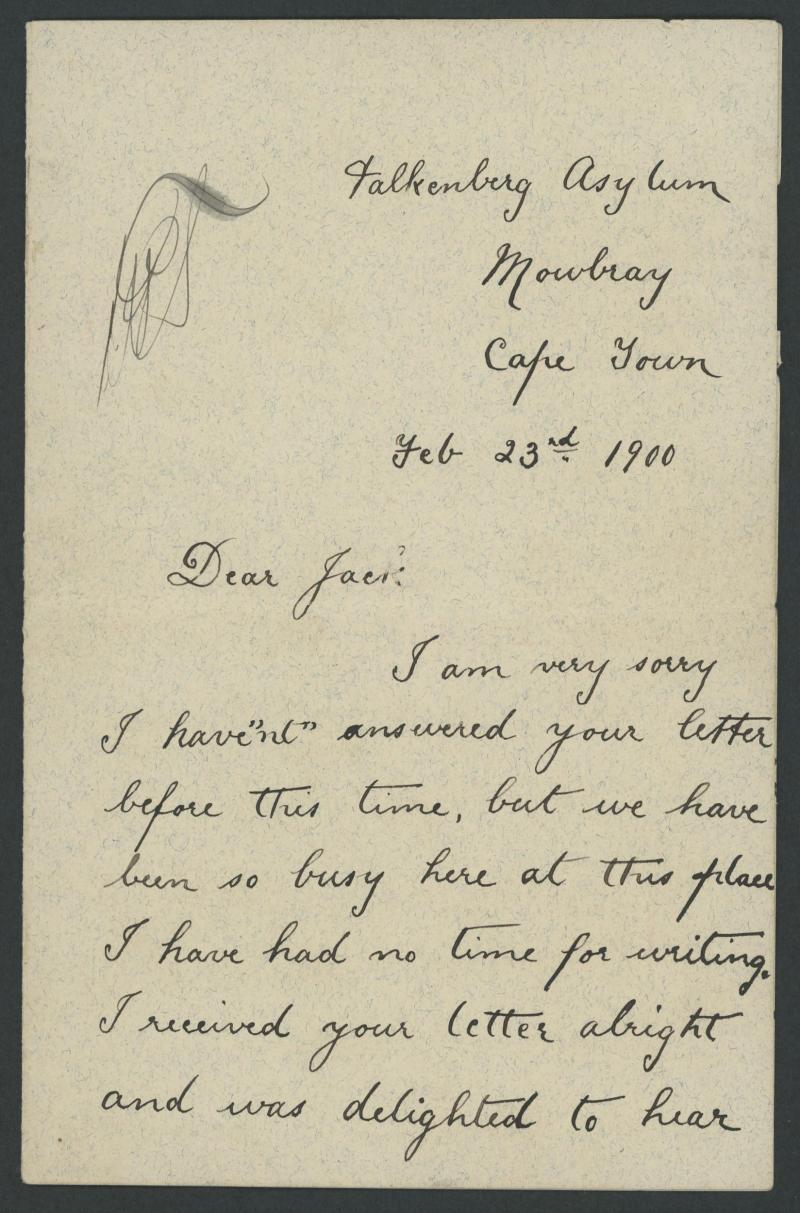 Falkenberg Asylum
Mowbray
Cape Town
Feb 23rd 1900
Dear Jack
I am very sorry
I have"nt" answered your letter
before this time, but we have
been so busy here at this place
I have had no time for writing.
I received your letter alright
and was delighted to hear